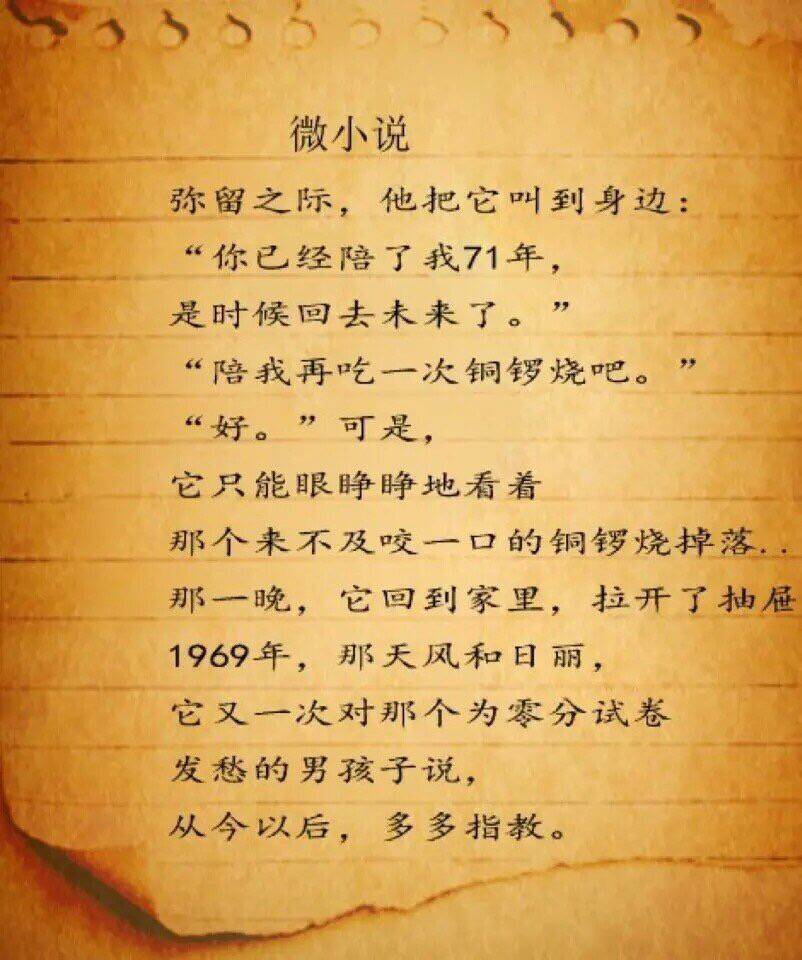 微小说
弥留之际，他把它叫到身边：
“你已经陪了我71年，
是时候回去未来了。”
“陪我再吃一次铜锣烧吧。”
“好。”可是，
它只能眼睁睁地看着
那个来不及咬一口的铜锣烧掉落..
那一晚，它回到家里，拉开了抽屉
1969年，那天风和日丽，
它又一次对那个为零分试卷
发愁的男孩子说，
从今以后，多多指教。